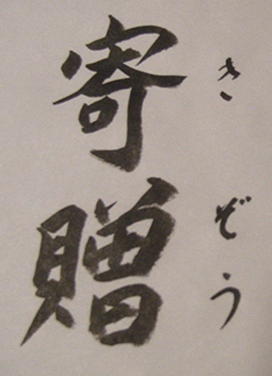 寄贈
きぞう